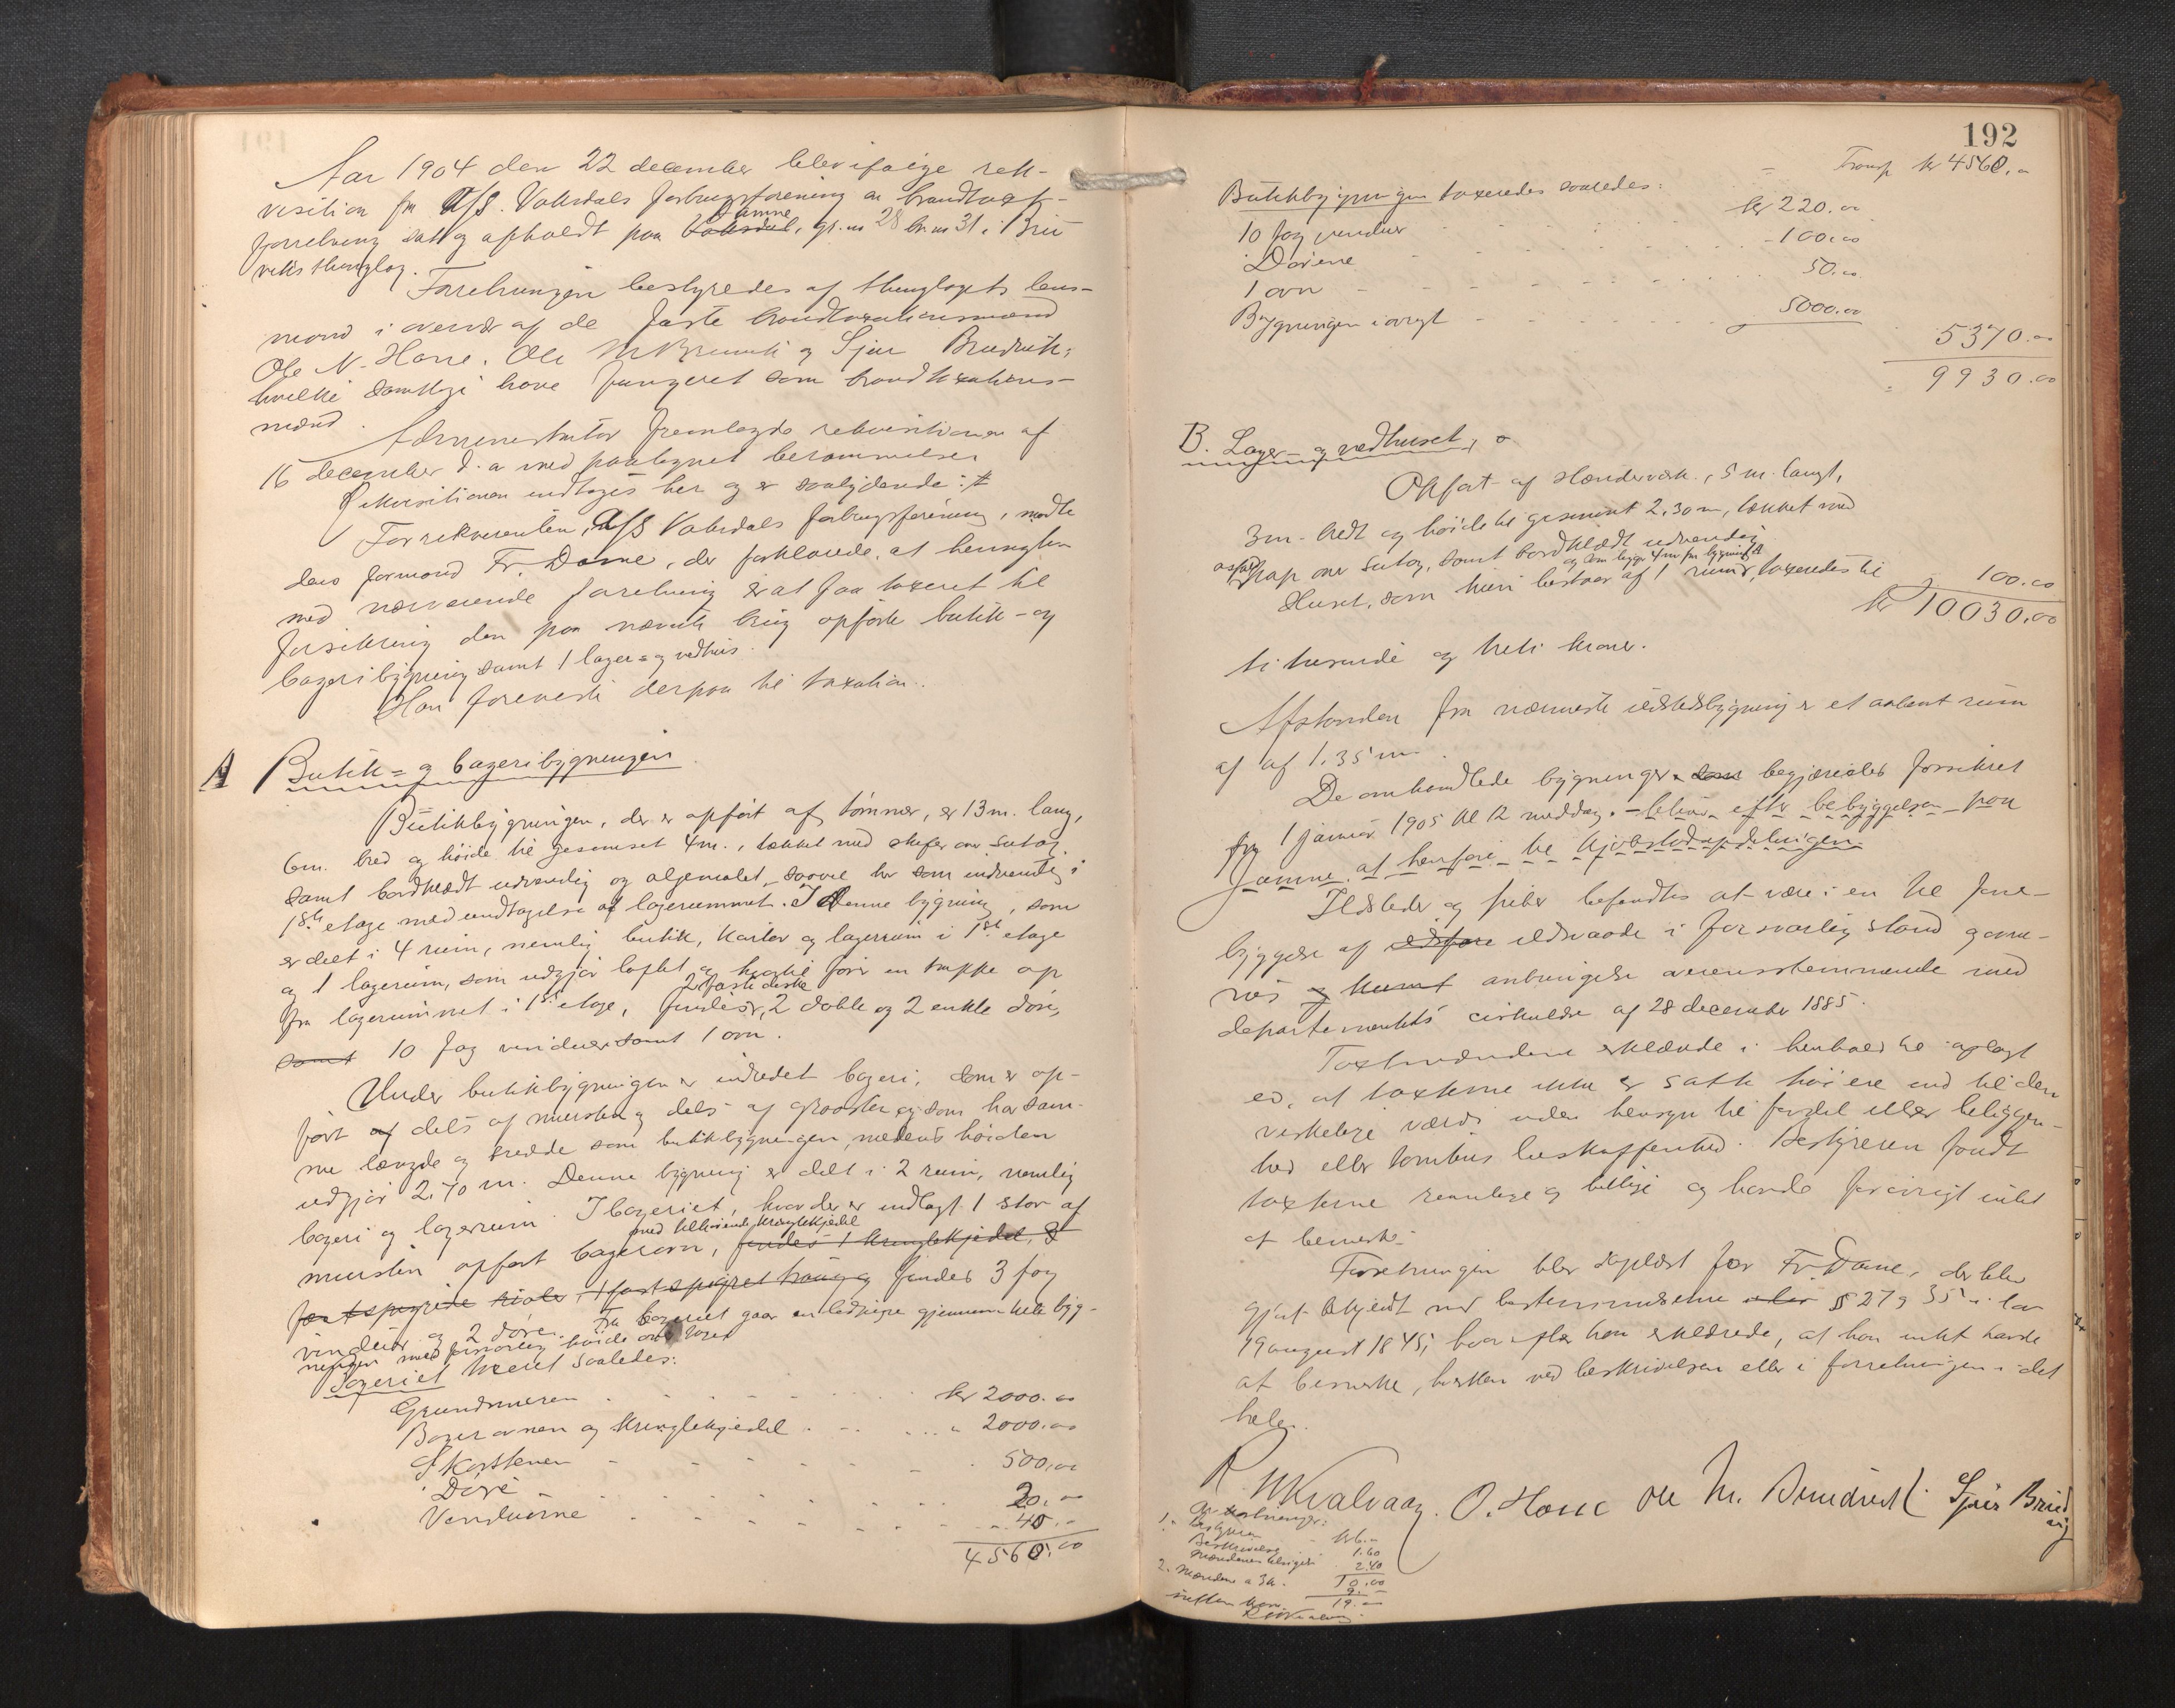 Aar 1904 den 22 december blev ifølge rek-
visition fra A/S. Vaksdals forbrugsforening en brandtaxt-
forretning sat og afholdt paa Jamne, gr. no 28 br. no 31 i Bru
viks thinglag.
Forretningen bestyredes af thinglagets lens-
mand i overvær af de faste brandtaxationsmænd
Ole N. Hane, Ole M Bruvik og Sjur Bruvik,
hvilke samtlige have fungeret som brandtaxations-
mænd.
Administrator fremlagde rekvisitionen af
16 december d. a. med paategnet berammelse
Rekvisitionen indtages her og er saalydende: #
For rekvirenten, A/S Vaksdals forbrugsforening, mødte
dens formand Fr. Dane, der forklarede, at hensigten
med nærværende forretning er at faa taxeret til
forsikring den paa nævnte brug opførte butik- og
bageribygning samt 1 lager- og vedhus.
Han foreviste derpaa til taxation.
A Butik- og bageribygningen
Butikbygningen, der er opført af tømmer, er 13 m. lang,
6 m. bred og høide til gesimset 4 m., tækket med skifer over sutag,
samt bordklædt udvendig og oljemalet saavel her som indvendig i
1ste etage med undtagelse af lagerummet. I denne bygning, som
er delt i 4 rum, nemlig butik, kontor og lagerrum i 1ste etage
og 1 lagerum, som udgjør loftet og hvortil fører en trappe op
fra lagerummet i 1ste etage, findes 2 faste diske, 2 doble og 2 enkle døre,
samt 10 fag vinduer samt 1 ovn.
Under butikbygningen er indredet bageri, som er op-
ført af dels af mursten og dels af graasten og som har sam-
me længde og bredde som butikbygningen, medens høiden
udgjør 2.70 m. Denne bygning er delt i 2 rum, nemlig
bageri og lagerrum. I bageriet, hvor der er indlagt 1 stor af
mursten opført bagerovn, med tilhørende kringlekjedel findes 1 kringlekjedel, &
1 fast og findes 3 fag
vinduer og 2 døre. Fra bageriet gaar en ledpibe gjennem hele byg-
ningen med forsvarlig høide over taget
Bageriet taxeret saaledes:
Grundmuren kr 2000.00
Bagerovnen og kringlekjedel " 2000.00
Skorstenen 500,00
Døre 20.-
Vinduerne 40.-
4560.00
192
Transp kr 4560.00
Butikbygningen taxeredes saaledes:
10 fag vinduer kr 220.00
Dørene - 100.00
1 ovn 50.00
Bygningen iøvrigt 5000.00
5370.00
9930.00
B. Lager- og vedhuset,
Opført af stænderværk, 5 m. langt,
3 m. bredt og høide til gesimset 2.30 m, tækket med
asfaltpap over sutag, samt bordklædt udvendig.
og som ligger 4 m fra bygning A
Huset, som kun bestaar af 1 rum, taxeredes til 100.00
kr 10030.00
ti tusinde og treti kroner.
Afstanden fra nærmeste ildstedsbygning er et aabent rum
af af 1.35 m.
De omhandlede bygninger begjæredes forsikret
fra 1 januar 1905 kl 12 middag. - bliver efter bebyggelsen paa
Jamne at henføre til kjøbstadsafdelingen.
Ildsteder og piber befandtes at være i en til fore-
byggelse af ildsvaade i forsvarlig stand og ovn-
rørs anbringelse overensstemmende med
departementets cirkulære af 28 december 1885.
Taxtmændene erklærede i henhold til aflagt
ed, at taxterne ikke er satte høiere end til den
virkelige værdi uden hensyn til fordel eller beliggen-
hed eller tomtens beskaffenhed. Bestyreren fandt
taxterne rimelige og billige og havde forøvrigt intet
at bemerke.
Forretningen blev oplæst for Fr. Dane, der blev
gjort bekjendt med bestemmelserne § 27 og 35 i lov
19 august 1845, hvorefter han erklærede, at han intet havde
at bemerke, hverken ved beskrivelsen eller i forretningen i det
hele.
R Kvalvaag. O. Hane Ole M. Bruvik Sjur Bruvig
Bestyreren kr 6.-
Beskrivelse 1.60
2.40
10.00
2. Mændene a 3 kr. 9.-
19.-
nitten kron.